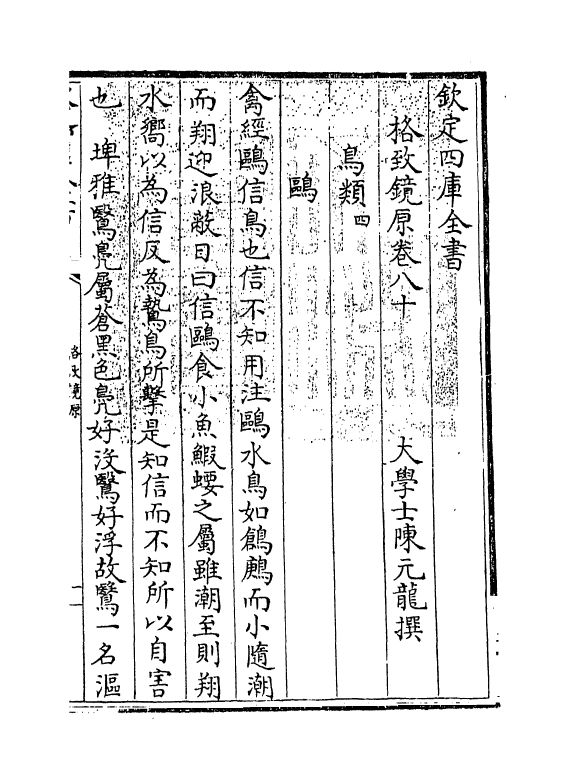 欽定四庫全書
格致鏡原卷八十　大學士陳元龍撰
鳥類四
鷗
禽經鷗信鳥也信不知用注鷗水鳥如鶬鷞而小隨潮
而翔迎浪蔽日曰信鷗食小魚鰕蝼之屬雖潮至則翔
水嚮以為信反為鷙鳥所擊是知信而不知所以自害
也　埤雅鷖鳧屬蒼黑色鳧好沒鷖好浮故鷖一名漚
格致鏡原
一